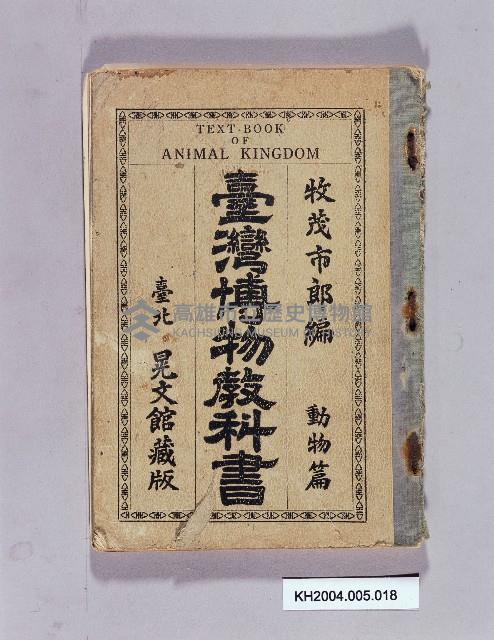 TEXT-BOOK
OF
ANIMAL KINGDOM
牧茂市郎編
動物篇
臺灣博物教科書
臺北 晃文館藏版
高雄市立歷史博物館
KAOHSIUNG MUSEUM OF HISTORY
KH2004.005.018